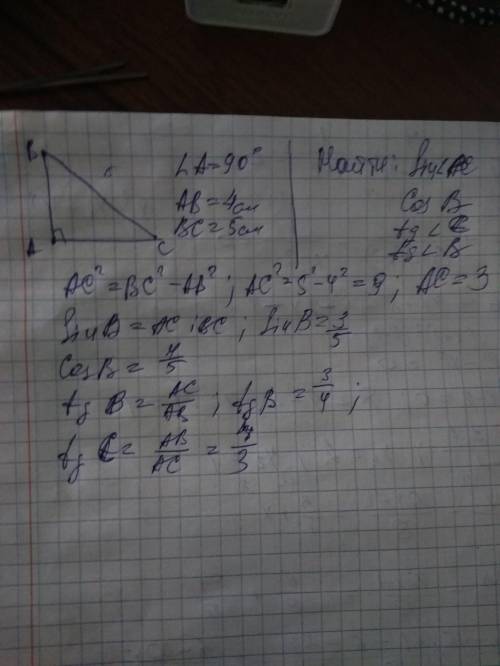 B
A
C
∠A=90°
AB=4см
BC=5см
Найти: Sin∠
Cos B
tg∠C
tg∠B
AC²=BC²-AB²; AC²=5²-4²=9; AC=3
Sin B = AC:BC; Sin B = 3/5
Cos B = 4/5
tg B = AC/AB; tg B = 3/4;
tg C = AB/AC = 4/3